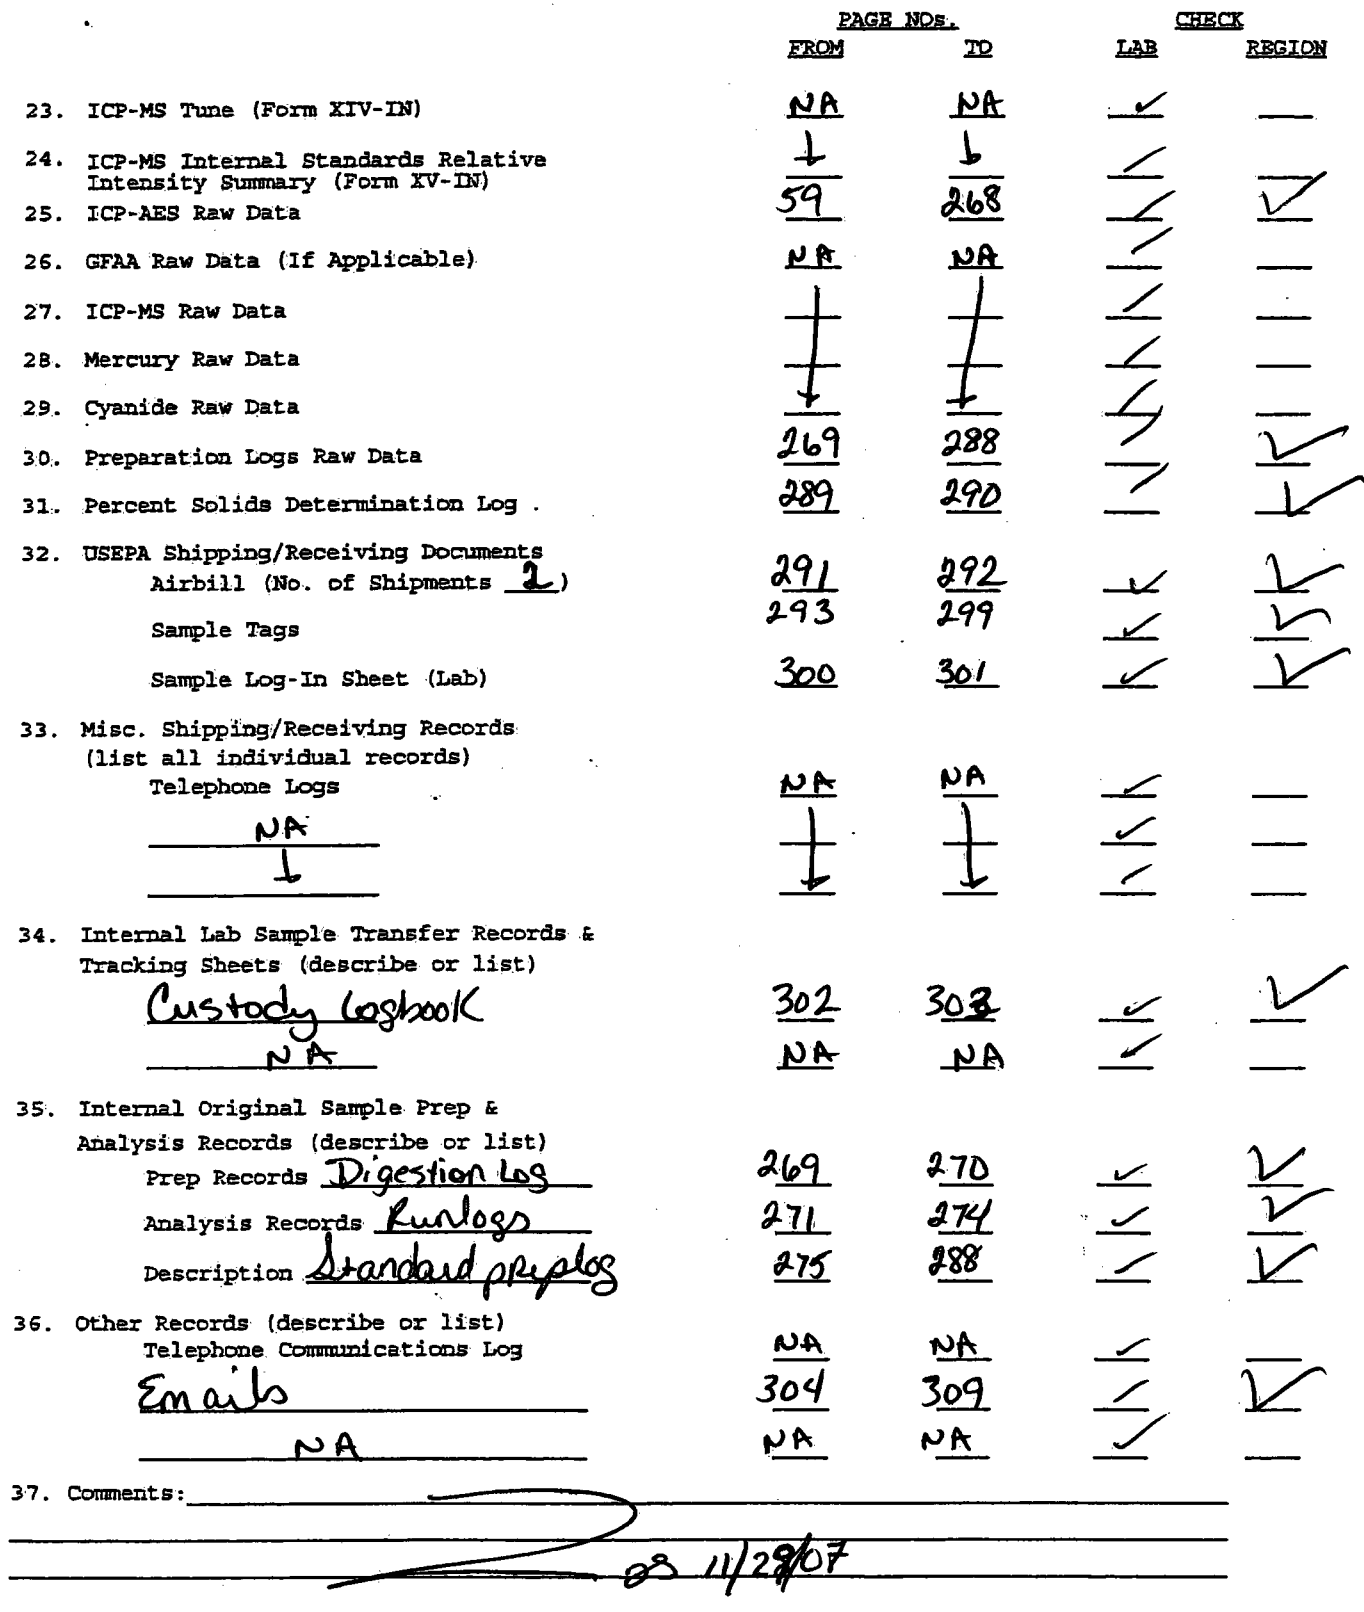 PAGE NOs. CHECK
FROM TO LAB REGION
23. ICP-MS Tune (Form XIV-IN) NA NA ✓
24. ICP-MS Internal Standards Relative
Intensity Summary (Form XV-IN)
25. ICP-AES Raw Data 59 268 ✓ ✓
26. GFAA Raw Data (If Applicable) NA NA
27. ICP-MS Raw Data
28. Mercury Raw Data
29. Cyanide Raw Data
30. Preparation Logs Raw Data 269 288 ✓
31. Percent Solids Determination Log . 289 290 ✓
32. USEPA Shipping/Receiving Documents
Airbill (No. of Shipments 2) 291 292 ✓ ✓
Sample Tags 293 299 ✓ ✓
Sample Log-In Sheet (Lab) 300 301 ✓ ✓
33. Misc. Shipping/Receiving Records
(list all individual records)
Telephone Logs NA NA ✓
NA ✓
34. Internal Lab Sample Transfer Records &
Tracking Sheets (describe or list)
Custody Logbook 302 303 ✓ ✓
NA NA NA ✓
35. Internal Original Sample Prep &
Analysis Records (describe or list)
Prep Records Digestion Log 269 270 ✓ ✓
Analysis Records Runlogs 271 274 ✓ ✓
Description Standard preplog 275 288 ✓ ✓
36. Other Records (describe or list)
Telephone Communications Log NA NA ✓
Emails 304 309 ✓ ✓
NA NA NA ✓
37. Comments: